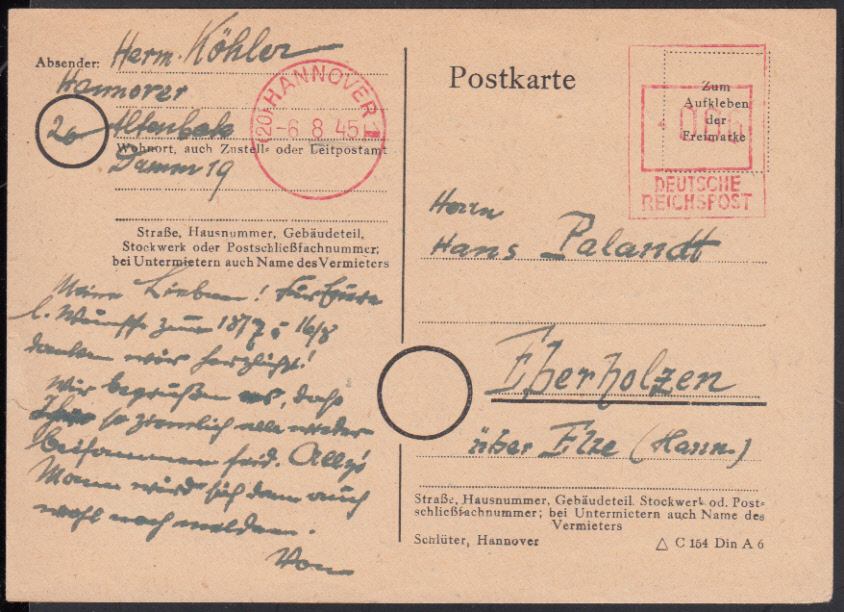 Absender: Herm. Köhler
Hannover
20 Altenbek
Wohnort, auch Zustell- oder Leitpostamt
Damm 19
Straße, Hausnummer, Gebäudeteil,
Stockwerk oder Postschließfachnummer;
bei Untermietern auch Name des Vermieters
(20) HANNOVER 1
-6. 8. 45
Meine Lieben! Für Eure
l. Wünsche zum 18/7 u 16/8
danken wir herzlichst!
Wir begrüßen es, daß
Ihr so ziemlich alle wieder
beisammen seid. Ally's
Mann wird sich dann auch
wohl noch melden.
Von
Postkarte
Zum
Aufkleben
der
Freimarke
006
DEUTSCHE
REICHSPOST
Herrn
Hans Palandt
Eberholzen
über Elze (Hann.)
Straße, Hausnummer, Gebäudeteil. Stockwerk od. Post-
schließfachnummer; bei Untermietern auch Name des
Vermieters
Schlüter, Hannover
△ C 154 Din A 6